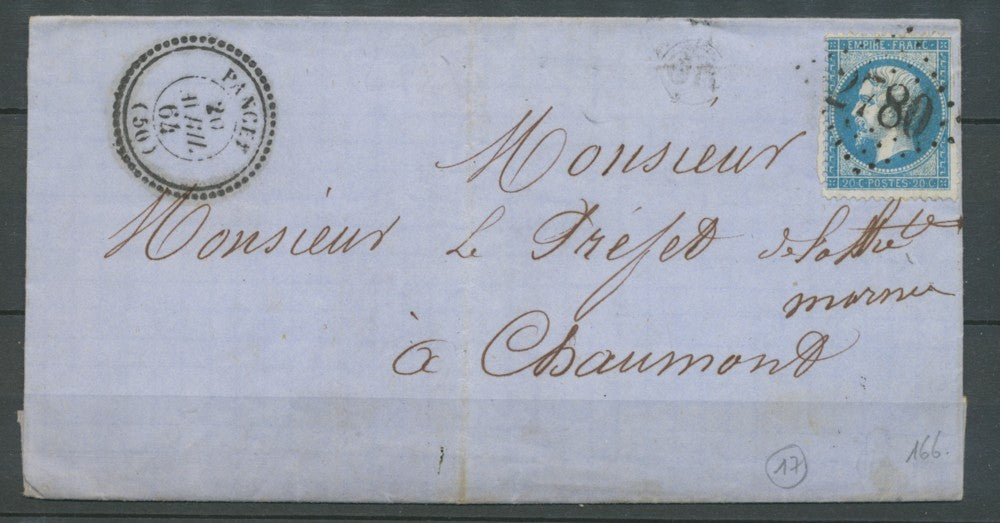 PANCEY
20
AVRIL
64
(50)
EMPIRE FRANC
2780
20 C POSTES 20 C
Monsieur
Monsieur Le Préfet de la Hte
marne
à Chaumont
17
166.